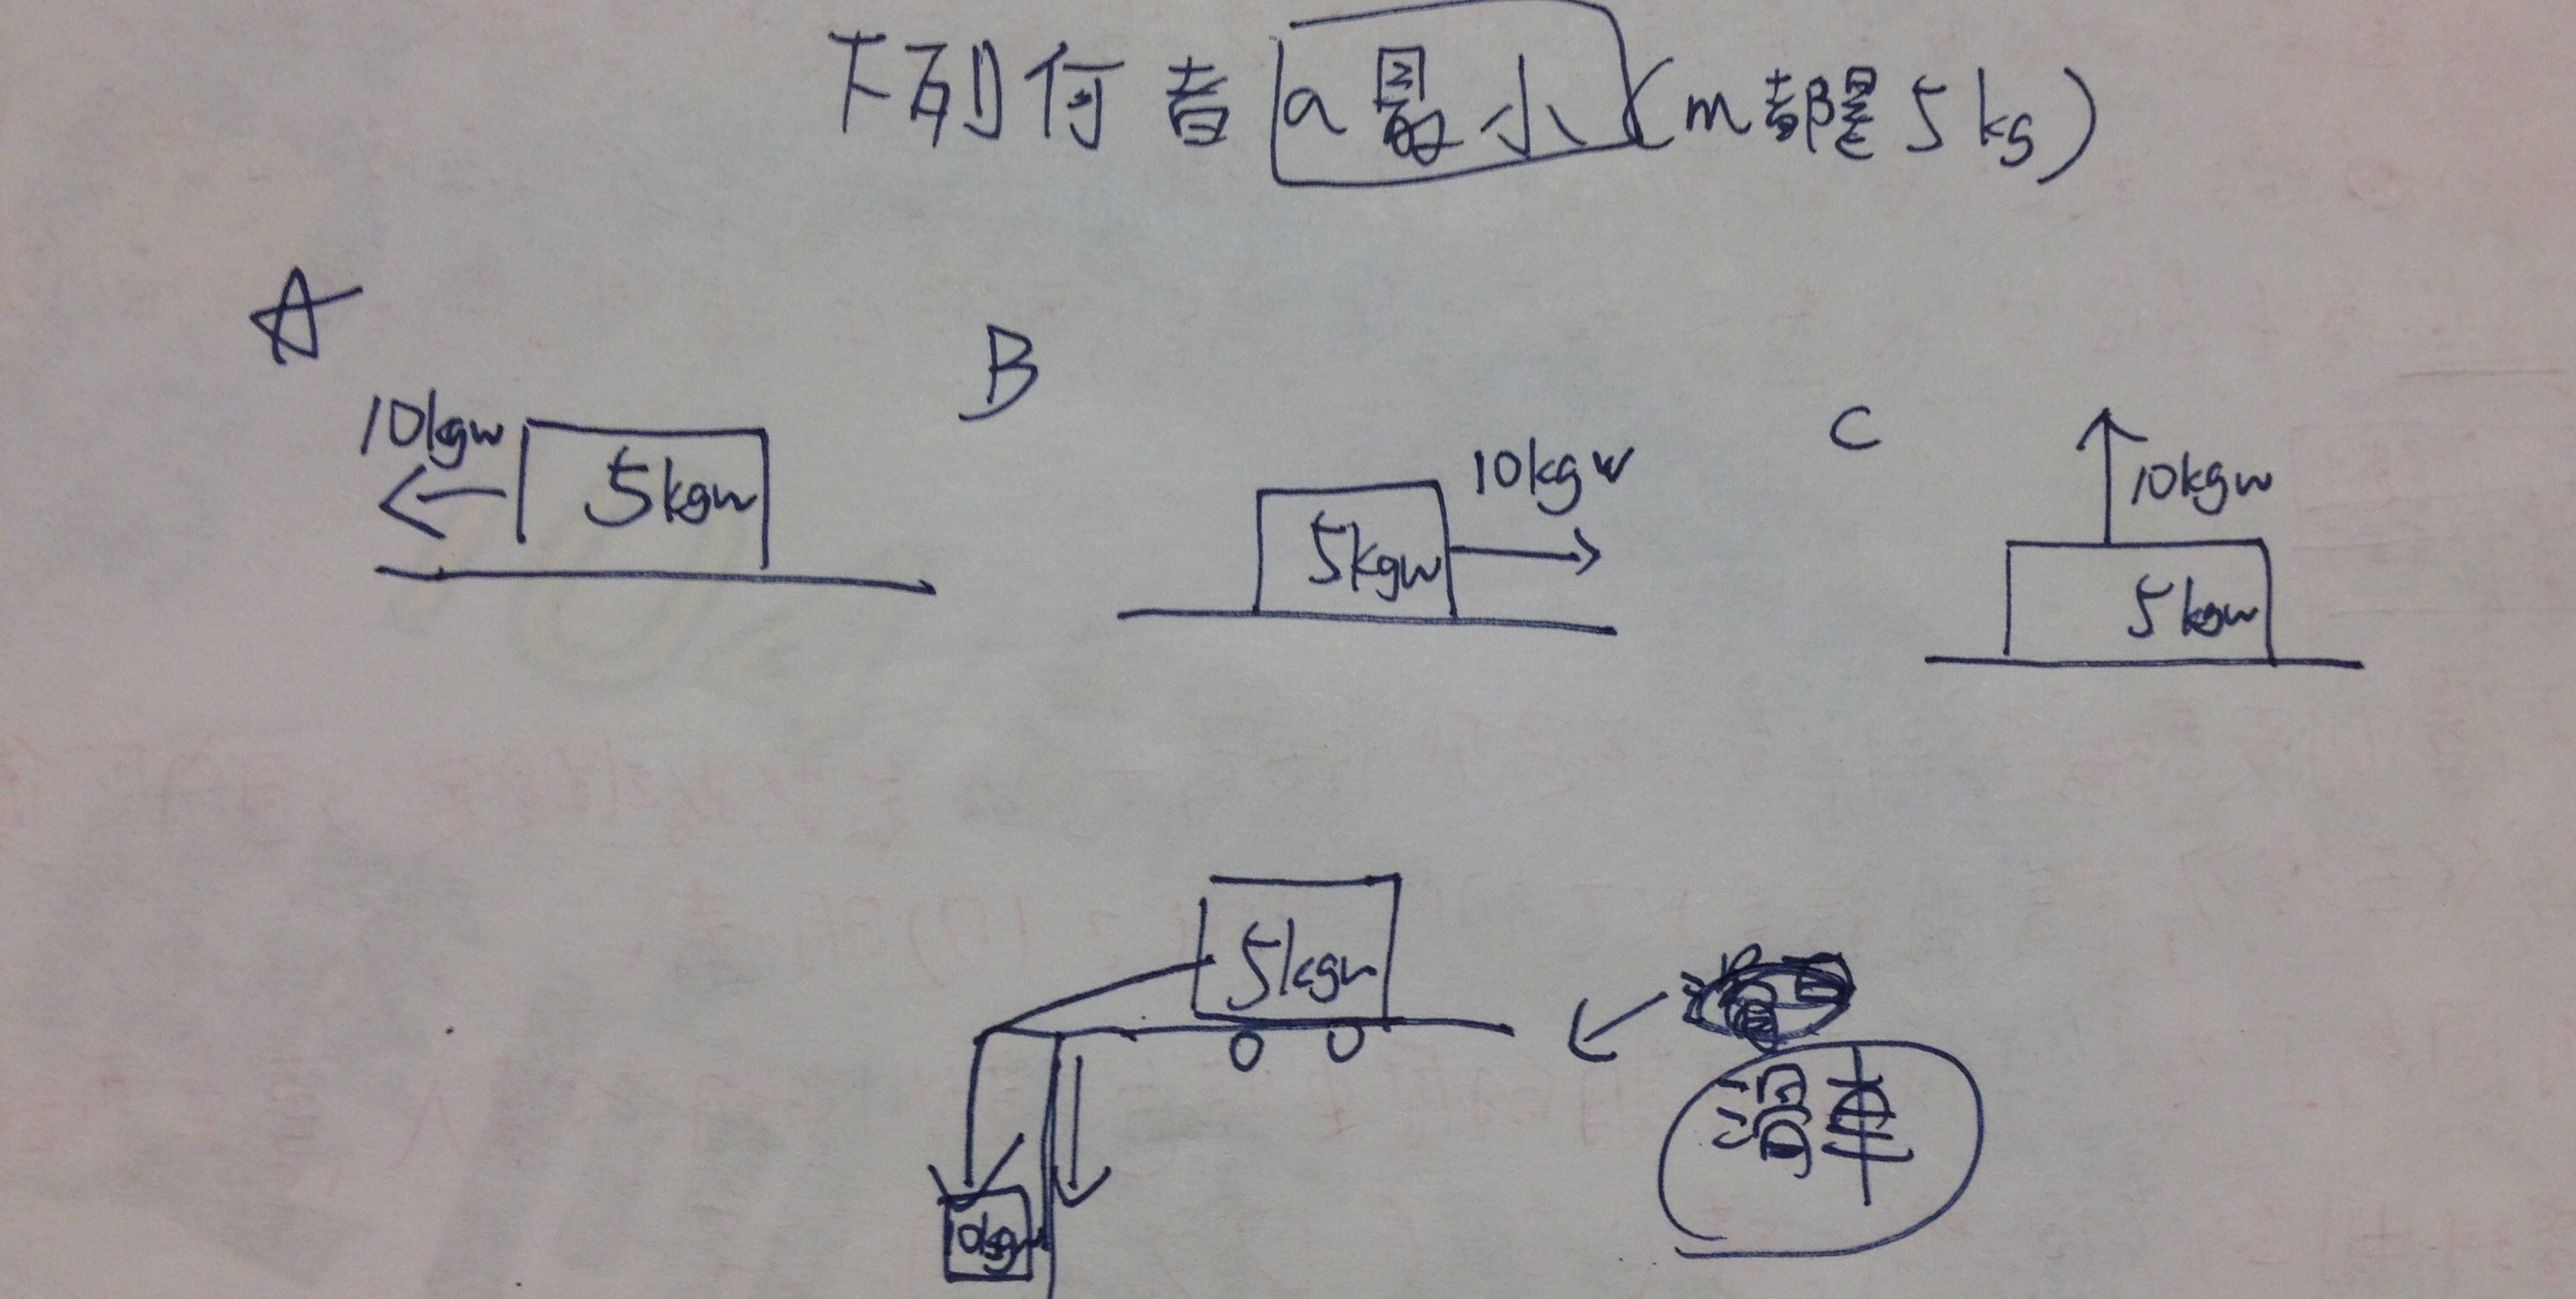 下列何者a最小(m都是5kg)
A
10kgw
5kgw
B
5kgw
10kgw
C
10kgw
5kgw
5kgw
10kgw
滑車